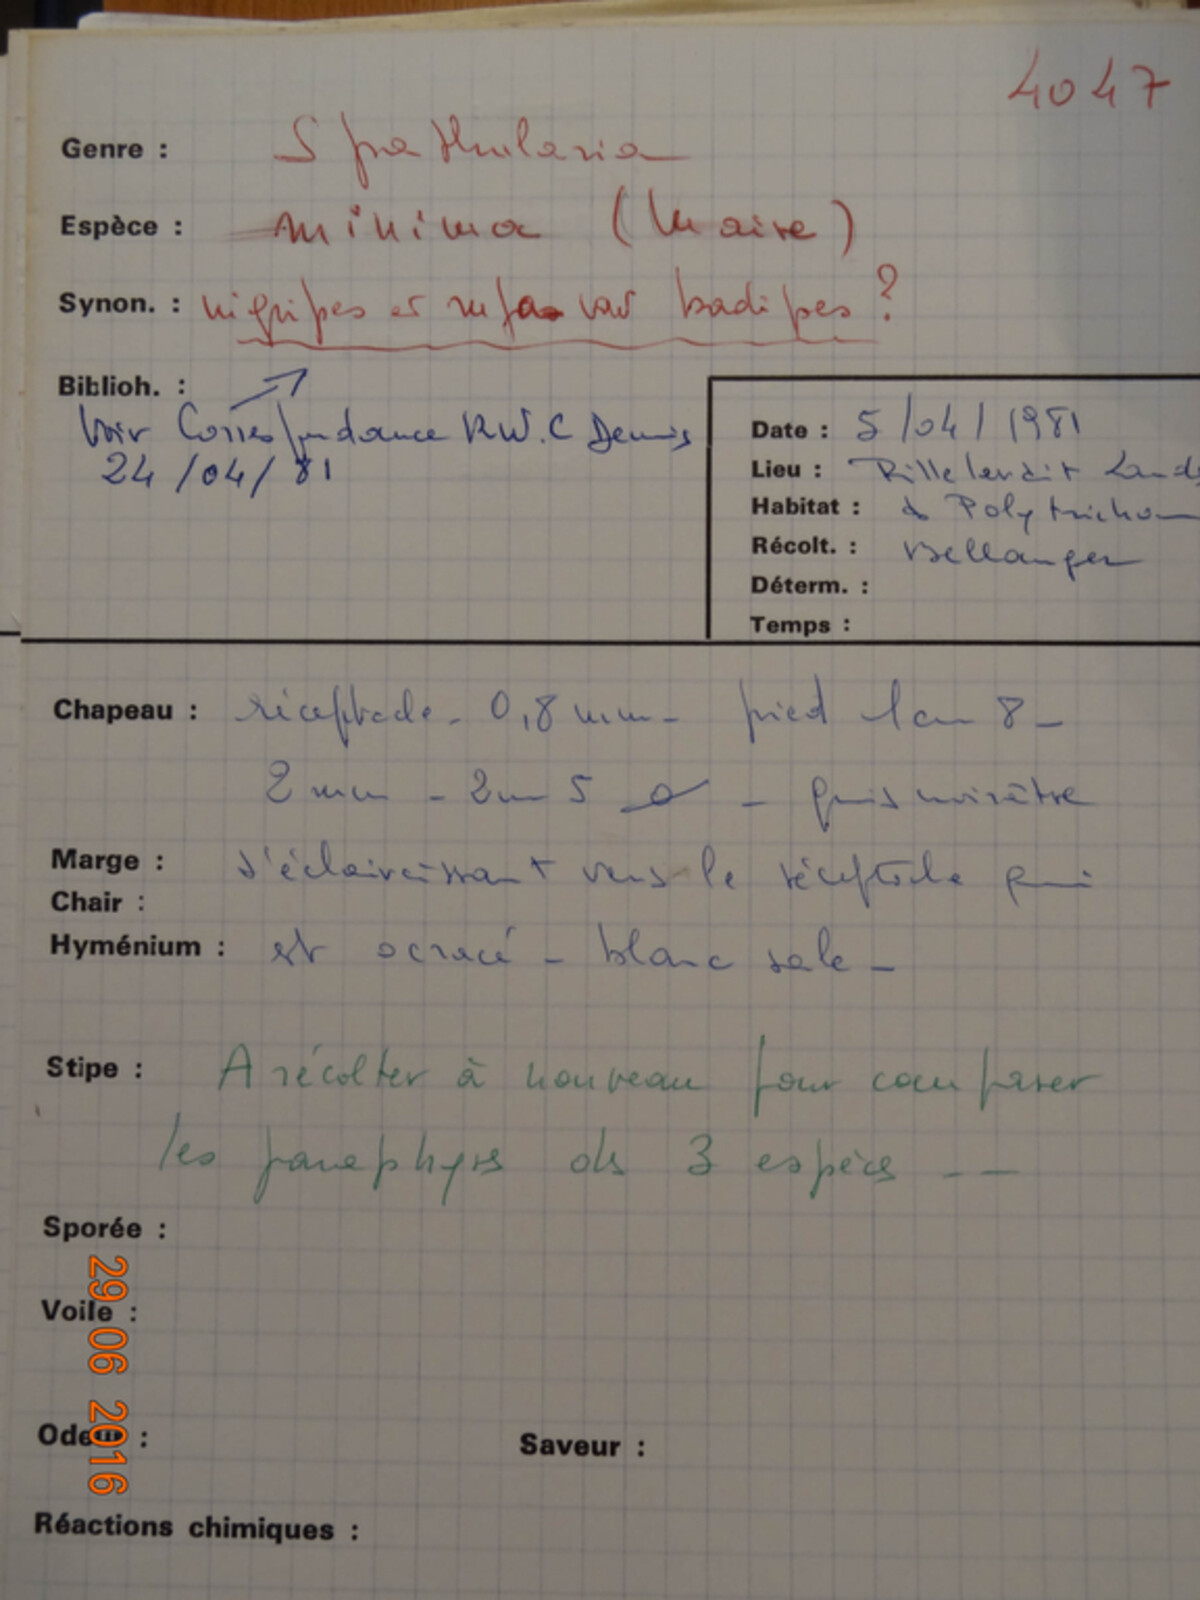 4047
Genre : Spathularia
Espèce : minima (Maire)
Synon. : nigripes et rufa var badipes ?
Biblioh. :
Voir Correspondance R.W.C Dennis
24/04/81
Date : 5/04/1981
Lieu : Rillé
Habitat : ds Polytrichum
Récolt. : Bellanger
Déterm. :
Temps :
Chapeau : réceptacle - 0,8 mm - pied 1 cm 8 -
2 mm - 2 cm 5 - gris noirâtre
Marge : s'éclaircissant vers le réceptacle qui
Chair :
Hyménium : est ocracé - blanc sale -
Stipe : A récolter à nouveau pour comparer
les paraphyses des 3 espèces --
Sporée :
Voile :
Odeur :
Saveur :
Réactions chimiques :
29 06 2016